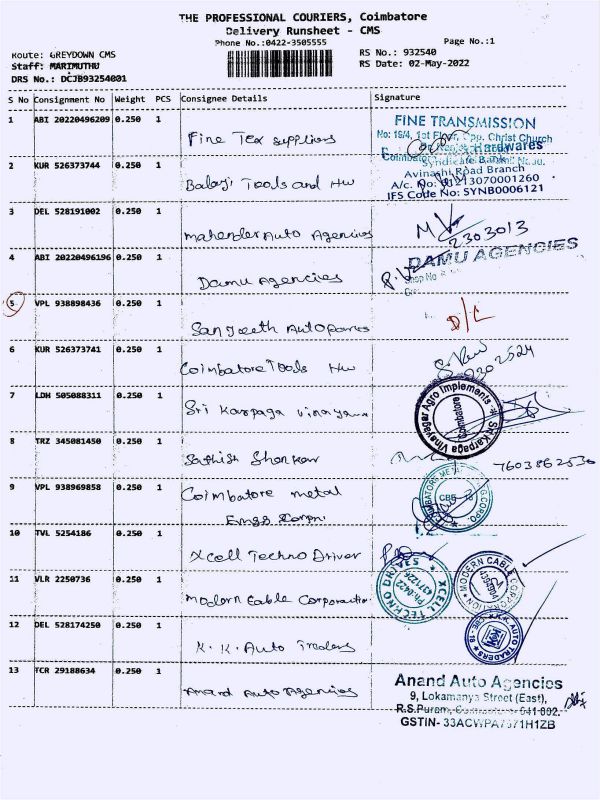 THE PROFESSIONAL COURIERS, Coimbatore
Delivery Runsheet - CMS
Phone No.:0422-3505555
Page No.:1
Route: GREYDOWN CMS
RS No.: 932540
Staff: MARIMUTHU
RS Date: 02-May-2022
DRS No.: DCJB93254001
S No Consignment No Weight PCS Consignee Details Signature
1 ABI 20220496209 0.250 1
Fine Tex suppliers
FINE TRANSMISSION
No: 16/4, 1st Floor, Opp. Christ Church
Hardwares
Syndicate Bank
Avinashi Road Branch
A/c. No: 01213070001260
IFS Code No: SYNB0006121
2 KUR 526373744 0.250 1
Balaji Tools and HW
3 DEL 528191002 0.250 1
Mahender Auto Agencies
2303013
4 ABI 20220496196 0.250 1
Damu Agencies
DAMU AGENCIES
Shop No
5 VPL 938898436 0.250 1
Sangeeth Autoparts
D/L
6 KUR 526373741 0.250 1
Coimbatore Tools HW
7 LDH 505088311 0.250 1
Sri Karpaga Vinayaga
Sri Karpaga Vinayagar Agro Implements
Coimbatore
8 TRZ 345081450 0.250 1
Sathish Shankar
7603862536
9 VPL 938969858 0.250 1
Coimbatore metal
Engg Corpn
10 TVL 5254186 0.250 1
Xcell Techno Driver
XCELL TECHNO DRIVES
11 VLR 2250736 0.250 1
Modern Cable Corporation
MODERN CABLE CORPORATION
12 DEL 528174250 0.250 1
K. K. Auto Traders
K.K. AUTO TRADERS
13 TCR 29188634 0.250 1
Anand Auto Agencies
Anand Auto Agencies
9, Lokamanya Street (East),
R.S.Puram,
GSTIN- 33ACWPA7371H1ZB